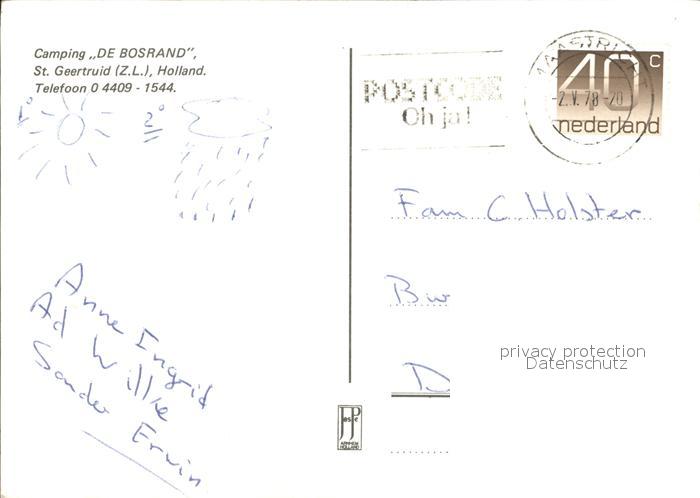 Camping „DE BOSRAND”,
St. Geertruid (Z.L.), Holland.
Telefoon 0 4409 - 1544.
1°
2°
POSTCODE
Oh ja!
MAASTRICHT
-2.V.78-20
40 c
nederland
Fam C. Holster
Bw
D
privacy protection
Datenschutz
Anne Ingrid
Ad Willie
Sander Erwin
JosPé
ARNHEM
HOLLAND